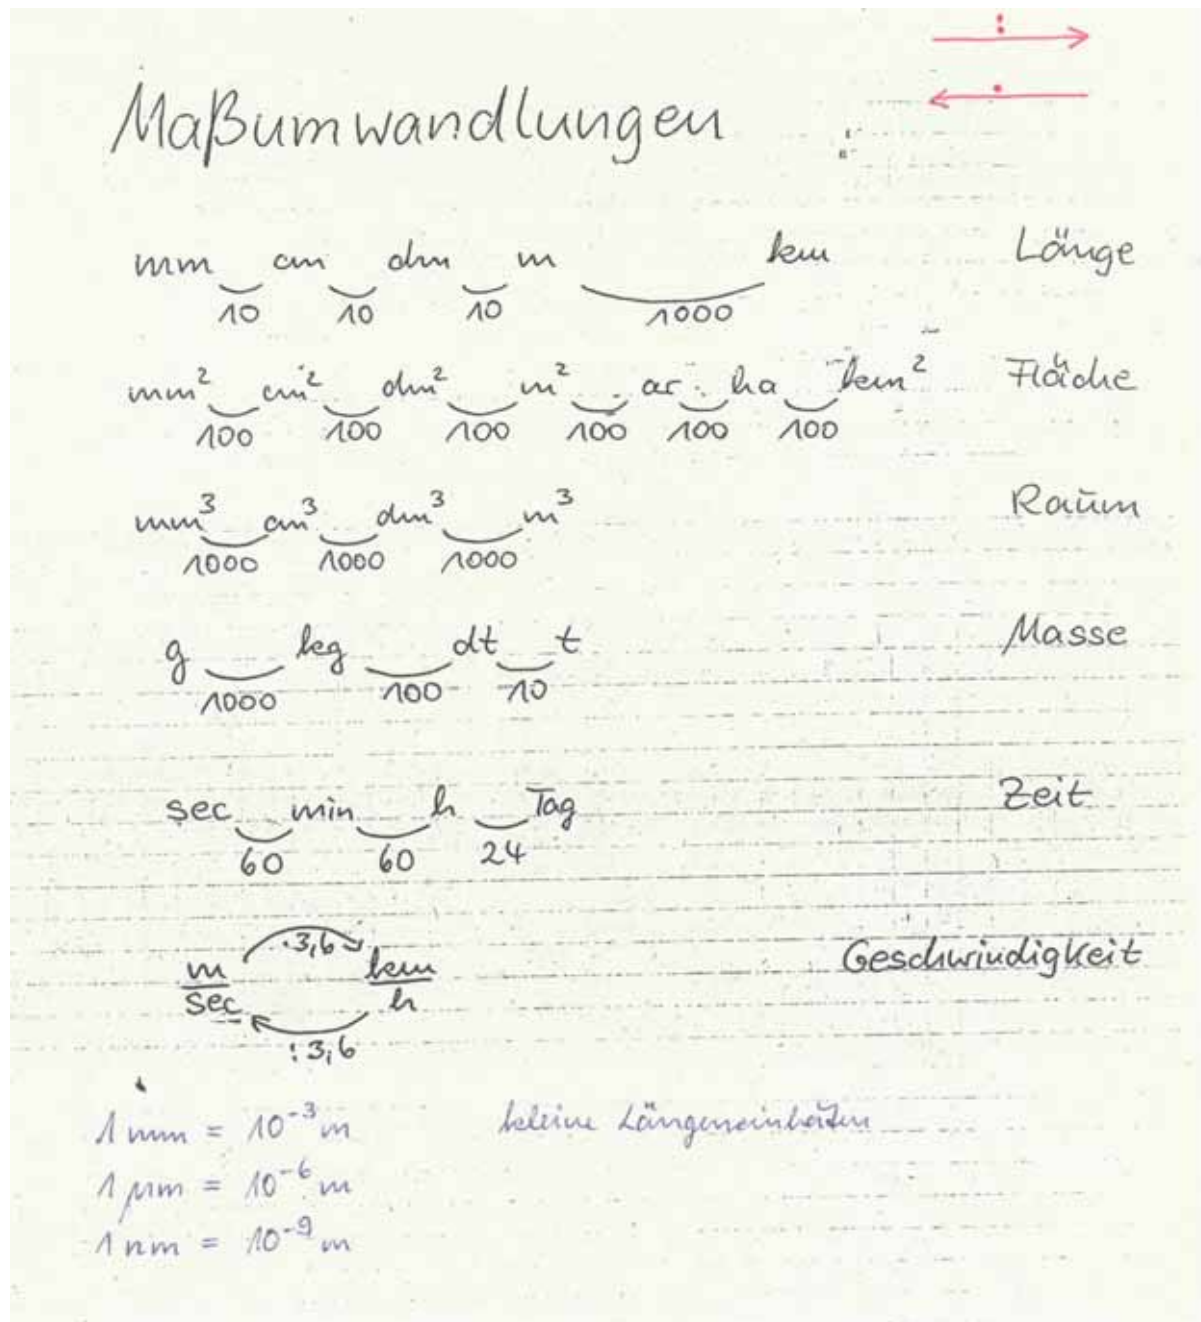 :
·
Maßumwandlungen
mm cm dm m km Länge
10 10 10 1000
mm² cm² dm² m² ar ha km² Fläche
100 100 100 100 100 100
mm³ cm³ dm³ m³ Raum
1000 1000 1000
g kg dt t Masse
1000 100 10
sec min h Tag Zeit
60 60 24
·3,6
m/sec km/h Geschwindigkeit
:3,6
1 mm = 10⁻³ m kleine Längeneinheiten
1 µm = 10⁻⁶ m
1 nm = 10⁻⁹ m